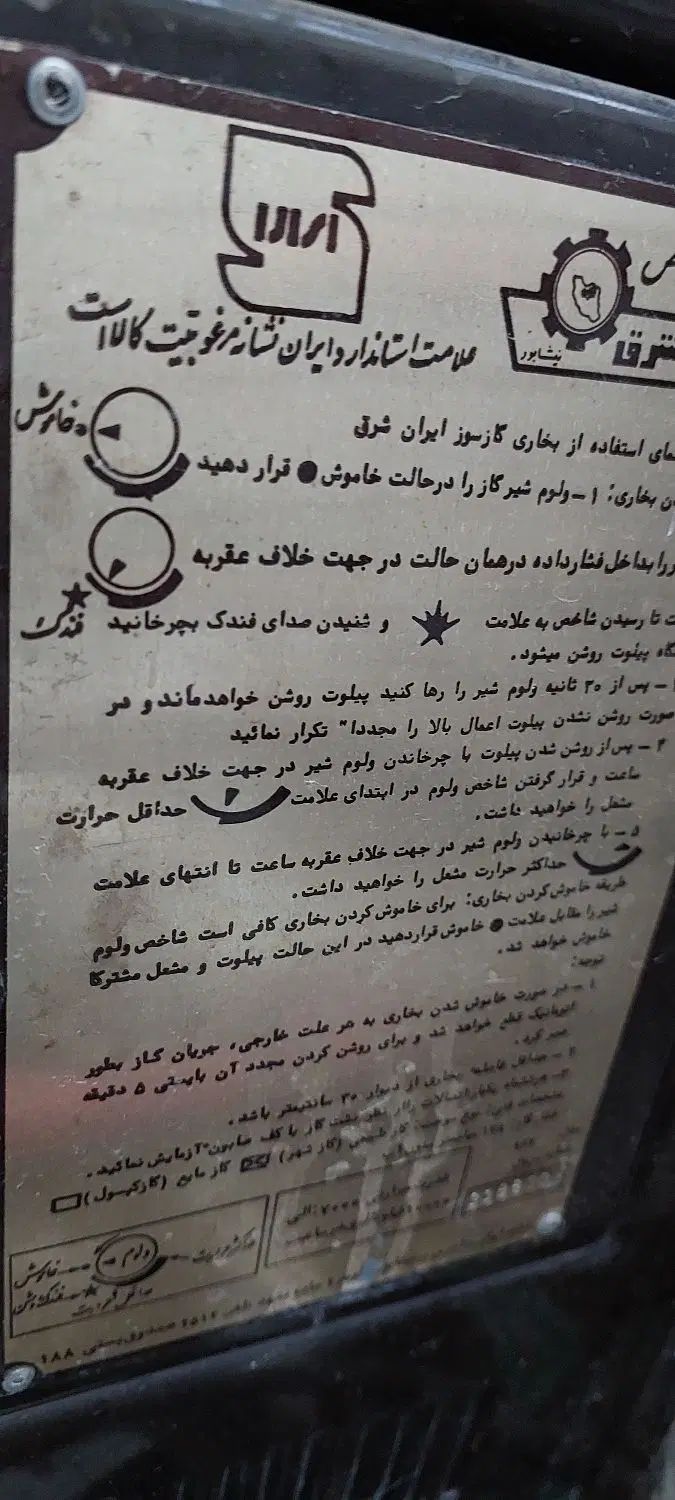 علامت استاندارد ایران نشانه مرغوبیت کالااست
نیشابور
شرق
استفاده از بخاری گازسوز ایران شرق
بخاری: ۱ - ولوم شیر گاز را درحالت خاموش ● قرار دهید
خاموش
را بداخل فشارداده درهمان حالت در جهت خلاف عقربه
تا رسیدن شاخص به علامت و شنیدن صدای فندک بچرخانید
فندک
پیلوت روشن میشود.
- پس از ۲۰ ثانیه ولوم شیر را رها کنید پیلوت روشن خواهدماند و در
صورت روشن نشدن پیلوت اعمال بالا را مجددا" تکرار نمائید
۴ - پس از روشن شدن پیلوت با چرخاندن ولوم شیر در جهت خلاف عقربه
ساعت و قرار گرفتن شاخص ولوم در ابتدای علامت حداقل حرارت
مشعل را خواهید داشت.
۵ - با چرخانیدن ولوم شیر در جهت خلاف عقربه ساعت تا انتهای علامت
حداکثر حرارت مشعل را خواهید داشت.
طریقه خاموش کردن بخاری: برای خاموش کردن بخاری کافی است شاخص ولوم
شیر را مقابل علامت ● خاموش قراردهید در این حالت پیلوت و مشعل مشترکا
خاموش خواهد شد.
توجه:
۱ - در صورت خاموش شدن بخاری به هر علت خارجی، جریان گاز بطور
اتوماتیک قطع خواهد شد و برای روشن کردن مجدد آن بایستی ۵ دقیقه
صبر کرد.
۲ - حداقل فاصله بخاری از دیوار ۳۰ سانتیمتر باشد.
گاز با کف صابون آزمایش نمائید.
گاز طبیعی (گاز شهر) گاز مایع (گاز کپسول)
خاموش ولوم حداکثر حرارت
فندک
صندوق پستی ۱۸۸